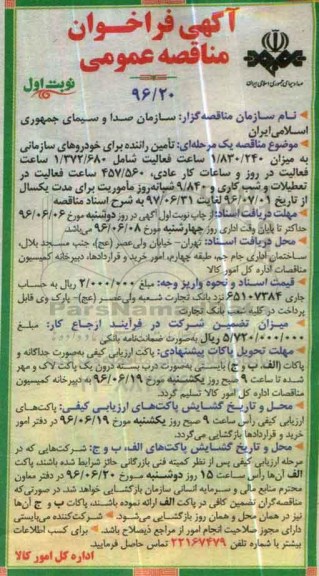 آگهی فراخوان
مناقصه عمومی
نوبت اول
۹۶/۲۰
صدا و سیمای جمهوری اسلامی ایران
نام سازمان مناقصه‌گزار: سازمان صدا و سیمای جمهوری
اسلامی ایران
موضوع مناقصه یک مرحله‌ای: تأمین راننده برای خودروهای سازمانی
به میزان ۱/۸۳۰/۲۴۰ ساعت فعالیت شامل ۱/۳۷۲/۶۸۰ ساعت
فعالیت در روز و ساعات کار عادی، ۴۵۷/۵۶۰ ساعت فعالیت در
تعطیلات و شب کاری و ۹/۸۴۰ شبانه‌روز مأموریت برای مدت یکسال
از تاریخ ۹۶/۰۷/۰۱ لغایت ۹۷/۰۶/۳۱ به شرح اسناد مناقصه
مهلت دریافت اسناد: از چاپ نوبت اول آگهی در روز دوشنبه مورخ ۹۶/۰۶/۰۶
حداکثر تا پایان وقت اداری روز چهارشنبه مورخ ۹۶/۰۶/۰۸ می‌باشد.
محل دریافت اسناد: تهران- خیابان ولی‌عصر (عج)، جنب مسجد بلال،
ساختمان اداری جام جم، طبقه چهارم، امور خرید و قراردادها، دبیرخانه کمیسیون
مناقصات اداره کل امور کالا
قیمت اسناد و نحوه واریز وجه: مبلغ ۲/۰۰۰/۰۰۰ ریال به حساب
جاری ۶۵۱۰۷۳۸۴ نزد بانک تجارت شعبه ولی‌عصر (عج)- پارک وی قابل
پرداخت در کلیه شعب بانک تجارت
میزان تضمین شرکت در فرآیند ارجاع کار: مبلغ
۵/۷۲۰/۰۰۰/۰۰۰ ریال به‌صورت ضمانت‌نامه بانکی
مهلت تحویل پاکات پیشنهادی: پاکت ارزیابی کیفی به‌صورت جداگانه و
پاکات (الف، ب و ج) بایستی به‌صورت درب بسته درون یک پاکت لاک و مهر
شده تا ساعت ۹ صبح روز یکشنبه مورخ ۹۶/۰۶/۱۹ به دبیرخانه کمیسیون
مناقصات اداره کل امور کالا تسلیم گردد.
محل و تاریخ گشایش پاکت‌های ارزیابی کیفی: پاکت‌های
ارزیابی کیفی رأس ساعت ۹ صبح روز یکشنبه مورخ ۹۶/۰۶/۱۹ در دفتر امور
خرید و قراردادها بازگشایی می‌گردد.
محل و تاریخ گشایش پاکت‌های الف، ب و ج: شرکت‌هایی که در
مرحله ارزیابی کیفی پس از نظر کمیته فنی بازرگانی حائز شرایط شده باشند پاکت
الف آن‌ها رأس ساعت ۱۵ روز دوشنبه مورخ ۹۶/۰۶/۲۰ در دفتر معاون
محترم منابع مالی و سرمایه انسانی سازمان بازگشایی خواهد شد. در صورتی که
مناقصه‌گران تضمین کافی در پاکت الف ارائه نموده باشند، پاکات ب و ج آن‌ها
نیز در همان محل و همان روز بازگشایی می‌شود. شرکت‌کننده می‌بایستی
دارای مجوز صلاحیت انجام امور از مراجع ذیصلاح باشد. برای کسب اطلاعات
بیشتر با شماره تلفن ۲۲۱۶۷۴۷۹ تماس حاصل فرمایید.
اداره کل امور کالا